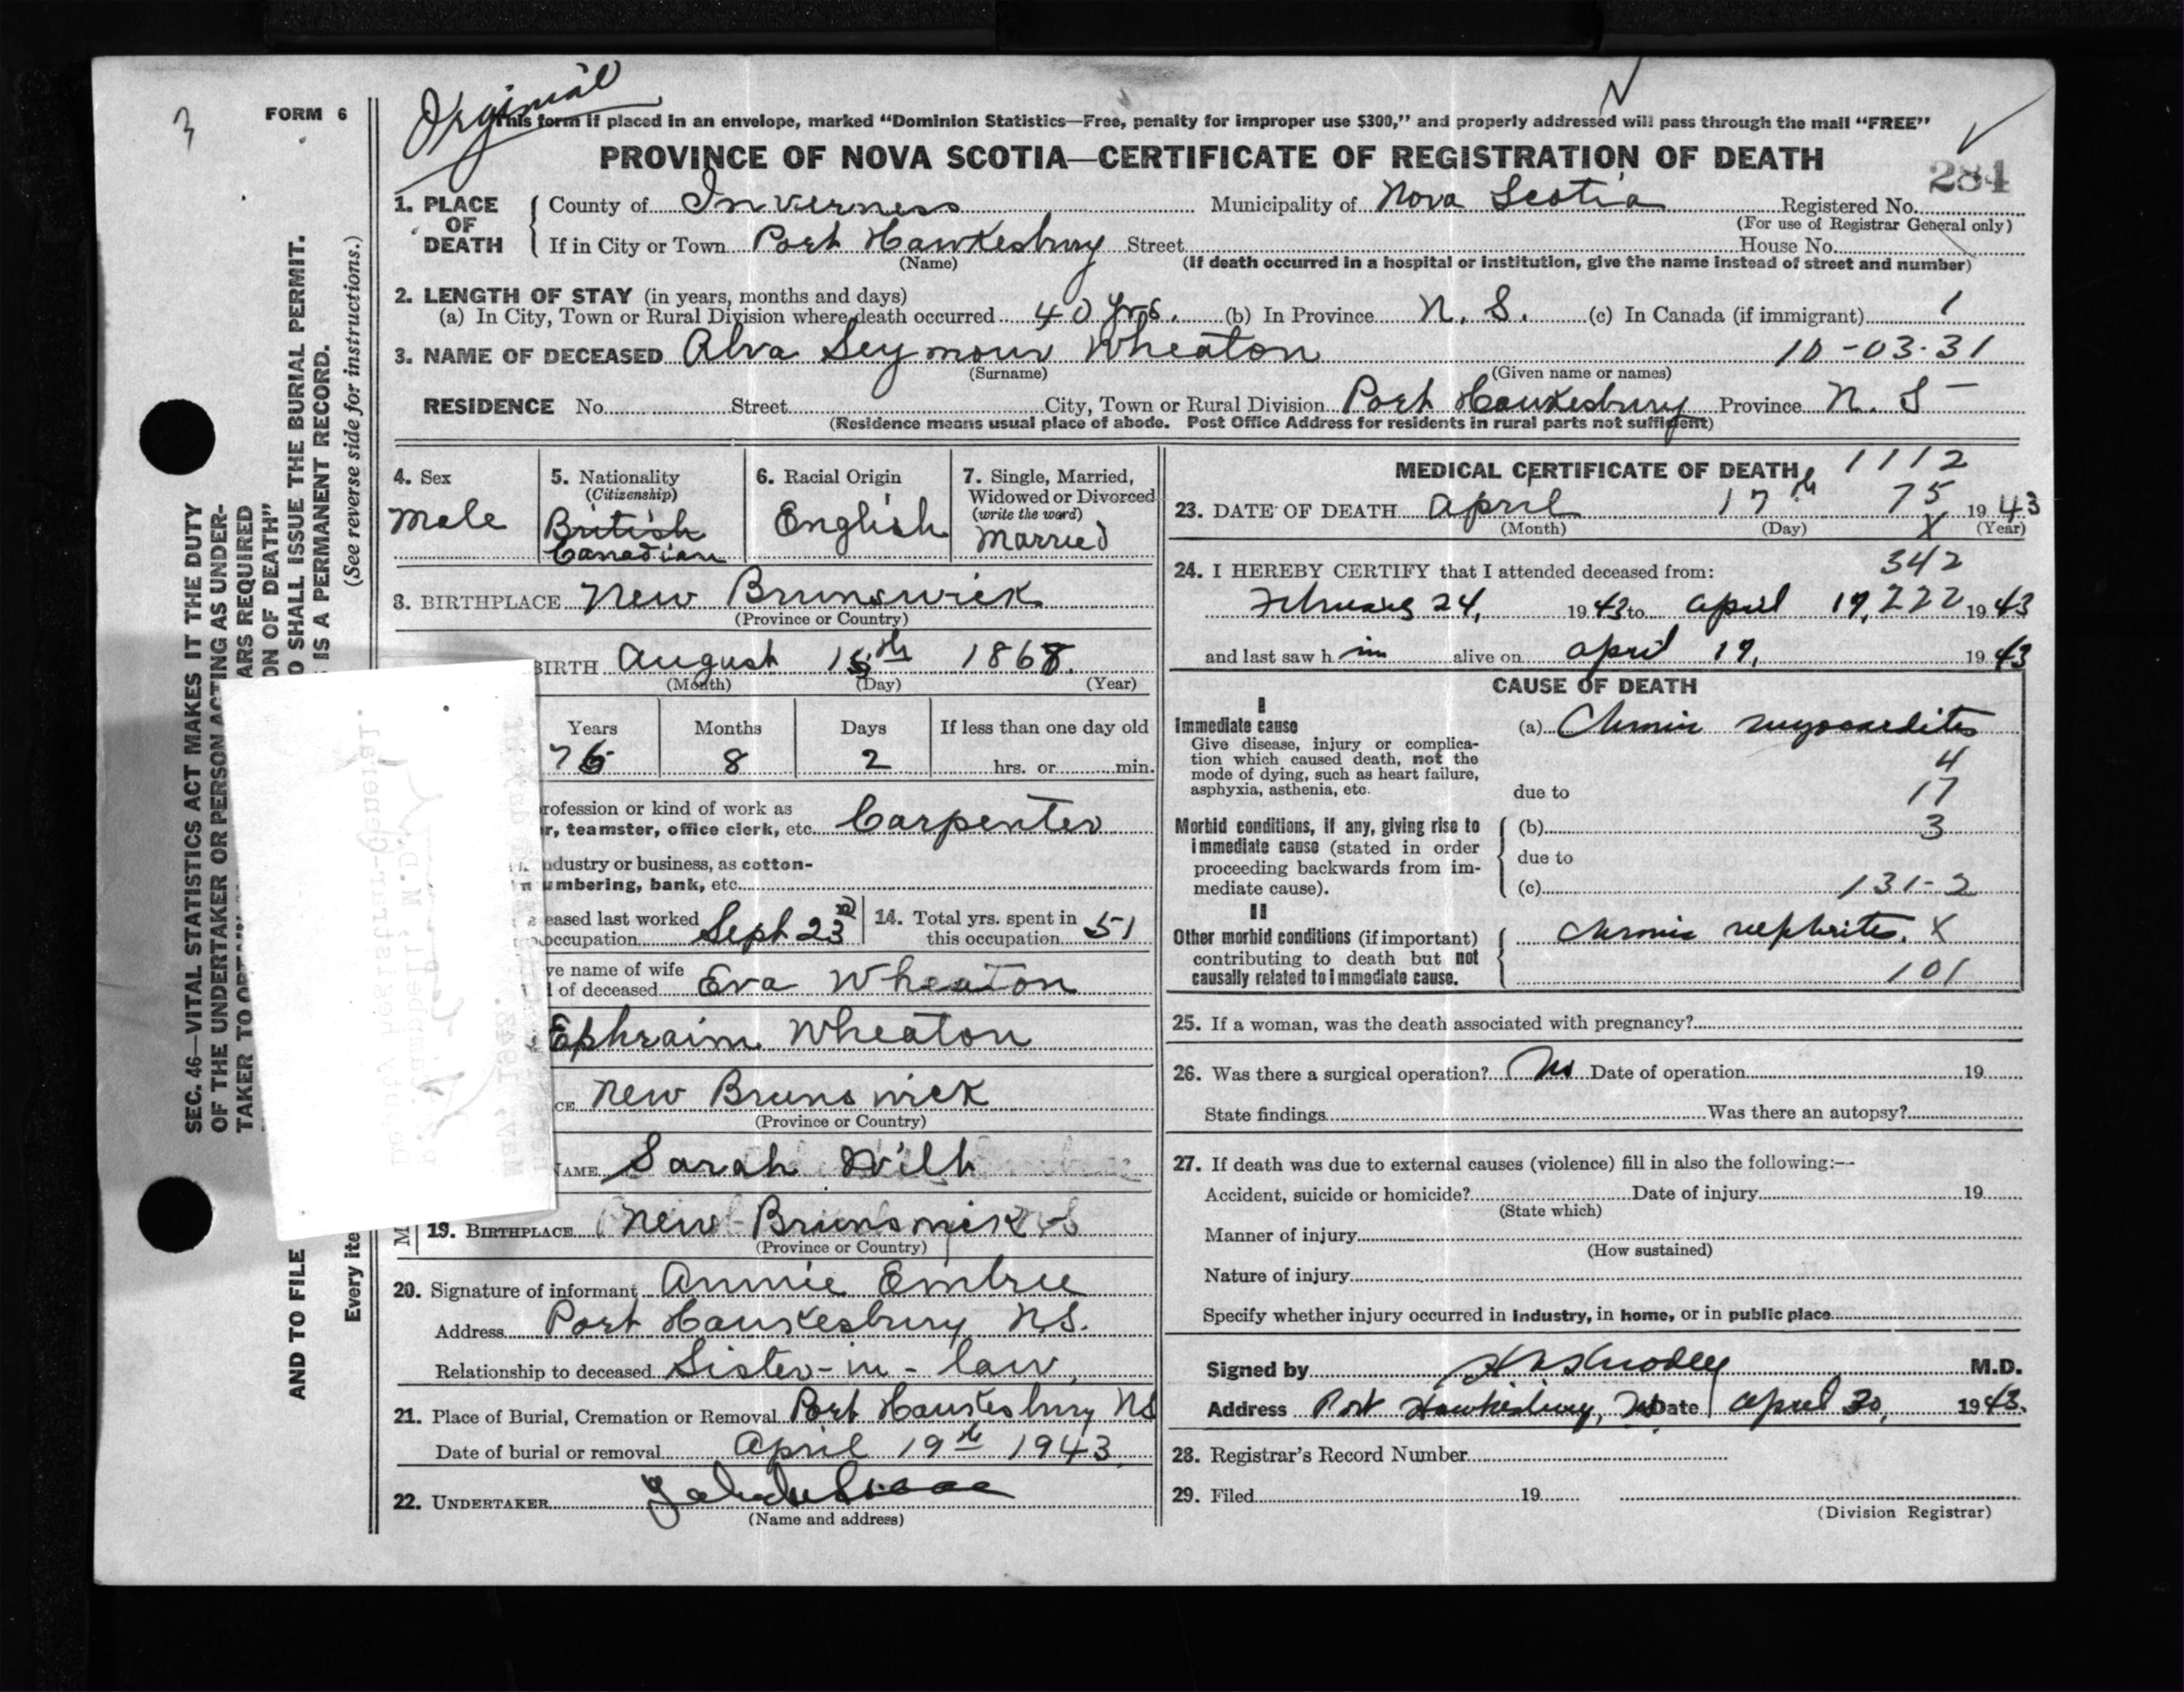 3
FORM 6
Orginial
This form if placed in an envelope, marked "Dominion Statistics—Free, penalty for improper use $300," and properly addressed will pass through the mail "FREE"
PROVINCE OF NOVA SCOTIA—CERTIFICATE OF REGISTRATION OF DEATH
284
1. PLACE OF DEATH
County of Inverness Municipality of Nova Scotia Registered No.
(For use of Registrar General only)
If in City or Town Port Hawkesbury Street House No.
(Name) (If death occurred in a hospital or institution, give the name instead of street and number)
2. LENGTH OF STAY (in years, months and days)
(a) In City, Town or Rural Division where death occurred 40 yrs. (b) In Province N. S. (c) In Canada (if immigrant) 1
3. NAME OF DECEASED Alva Seymour Wheaton 10-03-31
(Surname) (Given name or names)
RESIDENCE No. Street City, Town or Rural Division Port Hawkesbury Province N. S
(Residence means usual place of abode. Post Office Address for residents in rural parts not sufficient)
4. Sex
Male
5. Nationality
(Citizenship)
British
Canadian
6. Racial Origin
English
7. Single, Married,
Widowed or Divorced
(write the word)
Married
8. BIRTHPLACE New Brunswick
(Province or Country)
BIRTH August 15th 1868.
(Month) (Day) (Year)
Years Months Days If less than one day old
75 8 2 hrs. or min.
rofession or kind of work as
r, teamster, office clerk, etc. Carpenter
ndustry or business, as cotton-
umbering, bank, etc.
eased last worked
occupation Sept 23
14. Total yrs. spent in
this occupation 51
ve name of wife
of deceased Eva Wheaton
Ephraim Wheaton
CE New Brunswick
(Province or Country)
NAME Sarah
19. BIRTHPLACE New Brunswick
(Province or Country)
20. Signature of informant Annie Embree
Address Port Hawkesbury N.S.
Relationship to deceased Sister-in-law,
21. Place of Burial, Cremation or Removal Port Hawkesbury NS
Date of burial or removal April 19th 1943
22. UNDERTAKER
(Name and address)
MEDICAL CERTIFICATE OF DEATH 1112
75
23. DATE OF DEATH April 17th 1943
(Month) (Day) X (Year)
24. I HEREBY CERTIFY that I attended deceased from: 342
February 24, 1943 to April 17, 222 1943
and last saw h im alive on April 17, 1943
CAUSE OF DEATH
I
Immediate cause
Give disease, injury or complica-
tion which caused death, not the
mode of dying, such as heart failure,
asphyxia, asthenia, etc.
(a) Chronic myocarditis
4
due to 17
Morbid conditions, if any, giving rise to
immediate cause (stated in order
proceeding backwards from im-
mediate cause).
(b) 3
due to
(c) 131-2
II
Other morbid conditions (if important)
contributing to death but not
causally related to immediate cause.
Chronic nephritis. X
101
25. If a woman, was the death associated with pregnancy?
26. Was there a surgical operation? No Date of operation 19
State findings Was there an autopsy?
27. If death was due to external causes (violence) fill in also the following:—
Accident, suicide or homicide? Date of injury 19
(State which)
Manner of injury
(How sustained)
Nature of injury
Specify whether injury occurred in industry, in home, or in public place
Signed by M.D.
Address Port Hawkesbury, NS Date April 30, 1943.
28. Registrar's Record Number
29. Filed 19
(Division Registrar)
SEC. 46—VITAL STATISTICS ACT MAKES IT THE DUTY
OF THE UNDERTAKER OR PERSON ACTING AS UNDER-
TAKER TO OBTAIN
ARS REQUIRED
ON OF DEATH"
AND TO FILE
O SHALL ISSUE THE BURIAL PERMIT.
Every ite
IS A PERMANENT RECORD.
(See reverse side for instructions.)